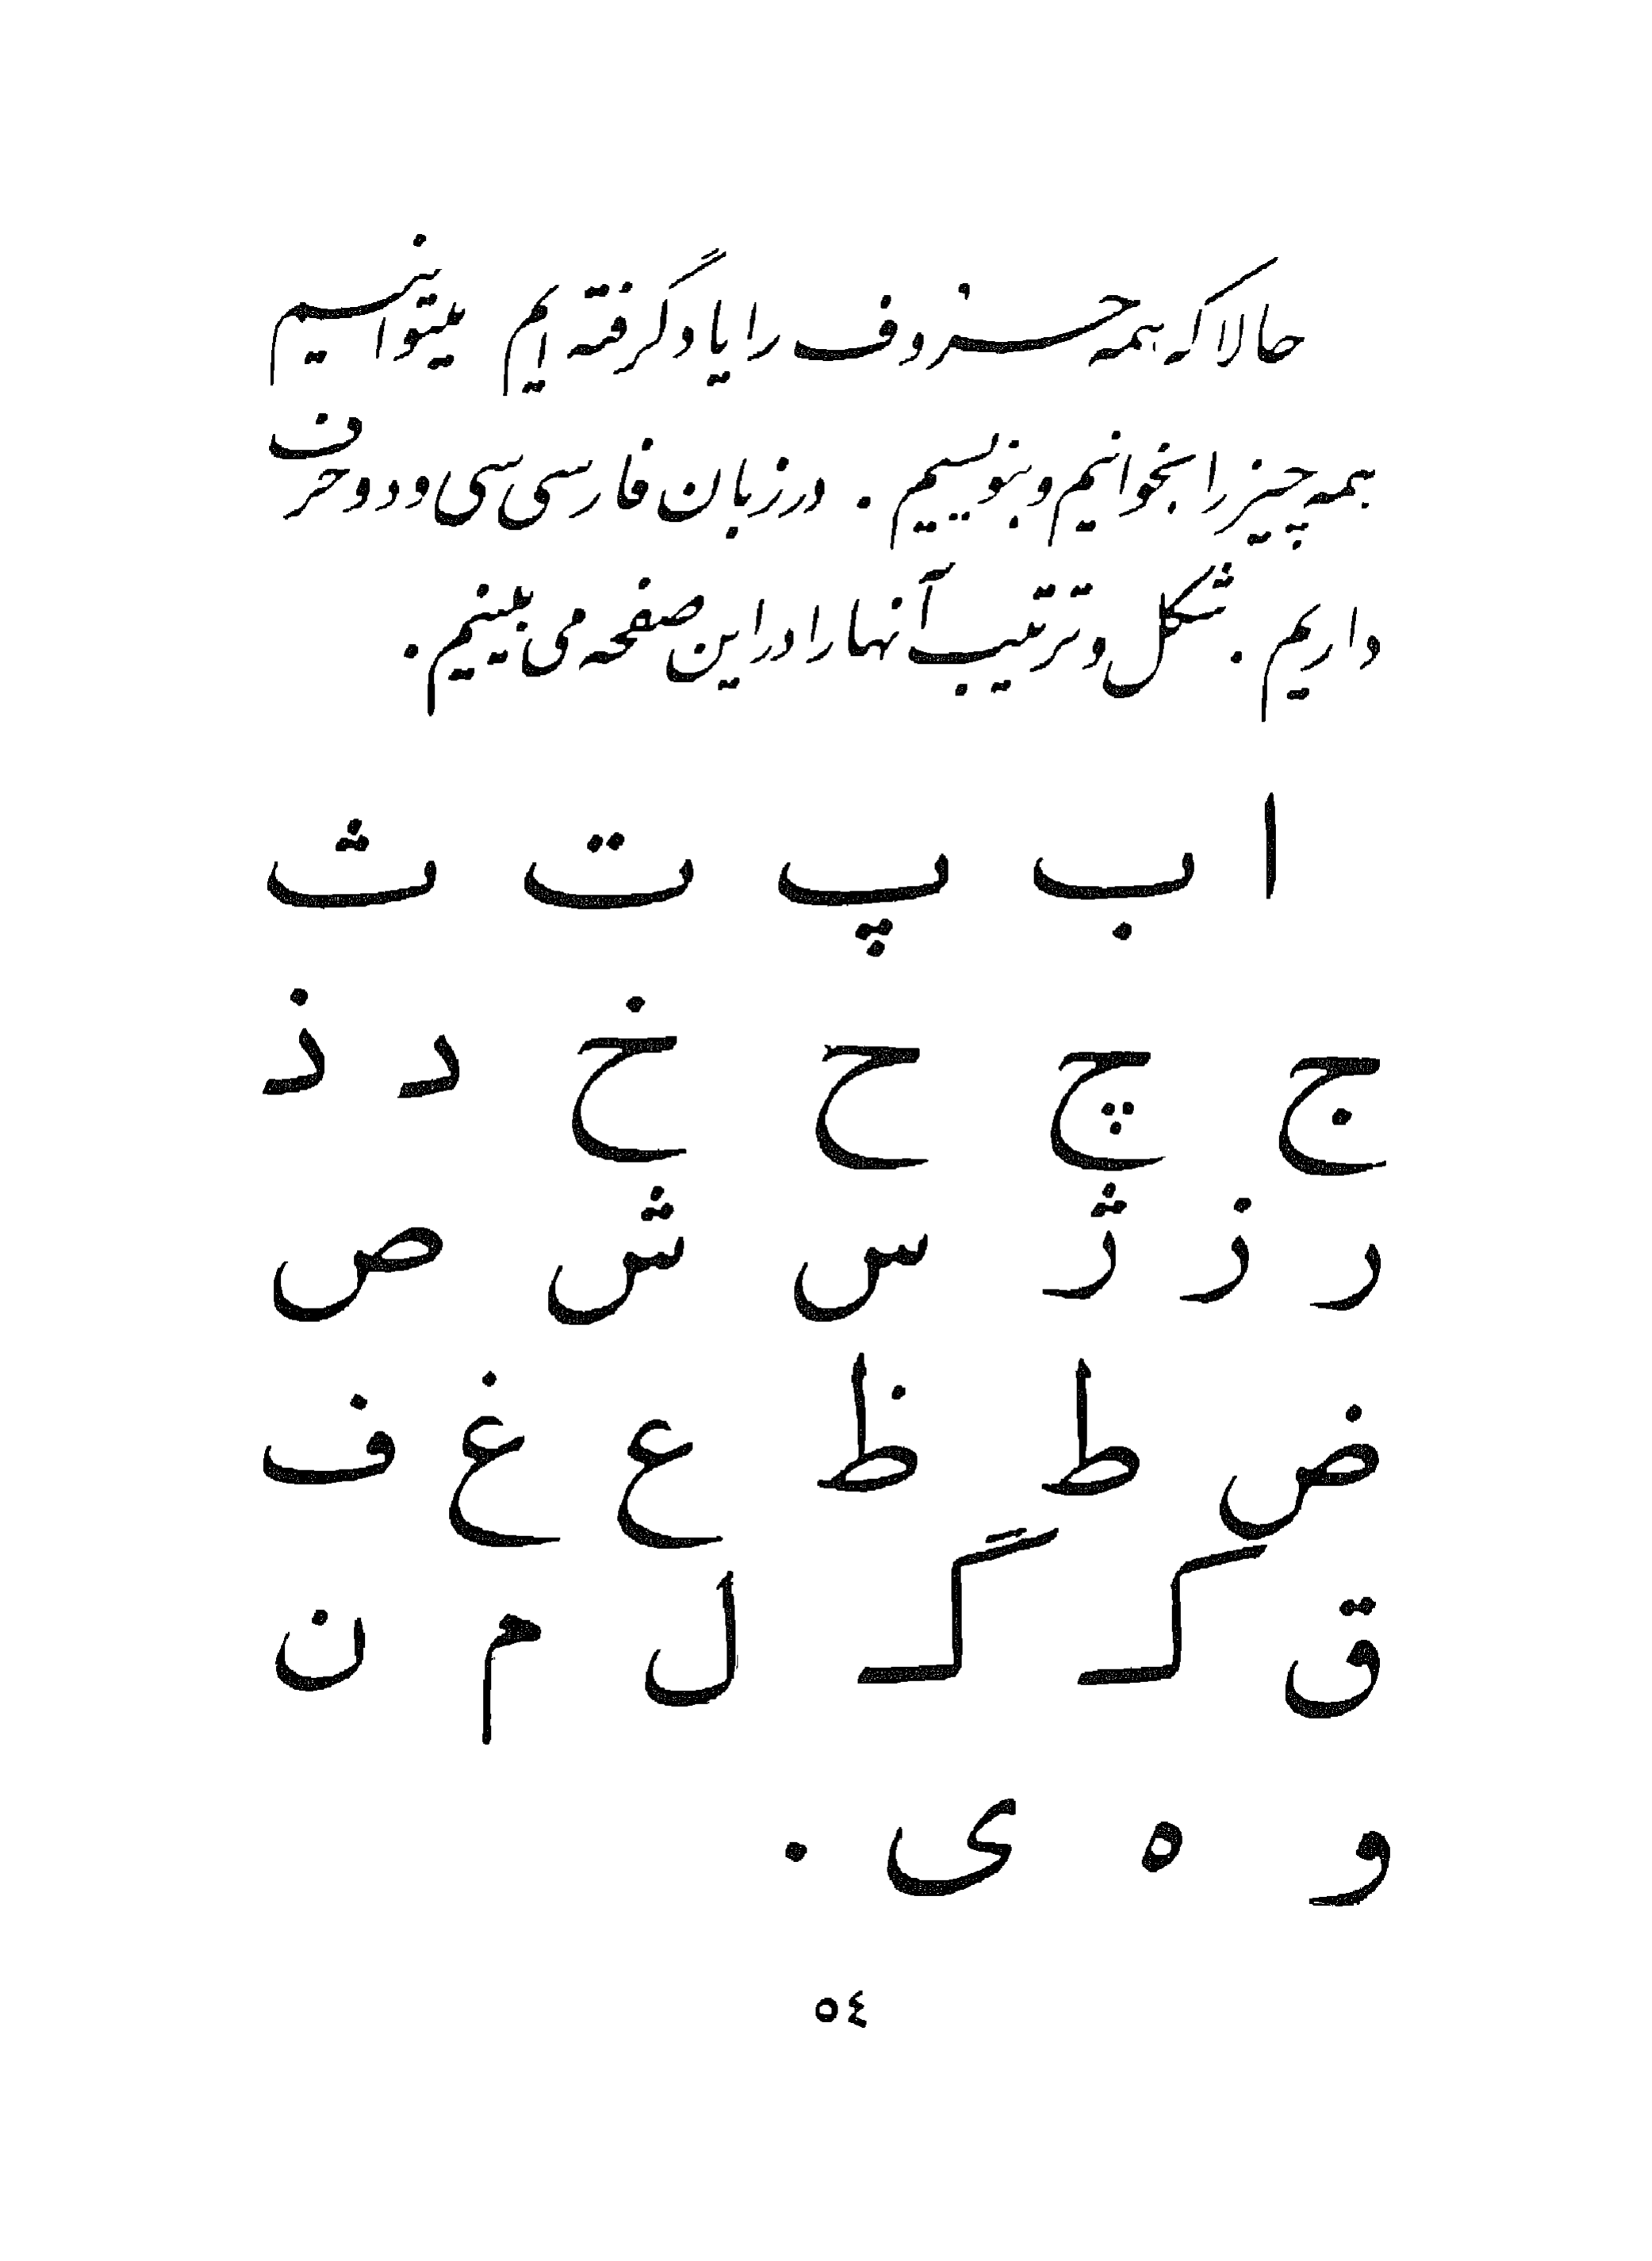 حالا که همه حروف را یاد گرفته ایم میتوانیم
همه چیز را بخوانیم و بنویسیم . در زبان فارسی سی و دو حرف
داریم . شکل و ترتیب آنها را در این صفحه می بینیم .
ا ب پ ت ث
ج چ ح خ د ذ
ر ز ژ س ش ص
ض ط ظ ع غ ف
ق ک گ ل م ن
و ه ی .
٥٤